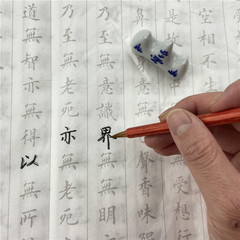 空相不
是故
鼻 意無 聲香味
乃至無意識界無無明
乃至無老死亦無老死
道無知亦無得以無所